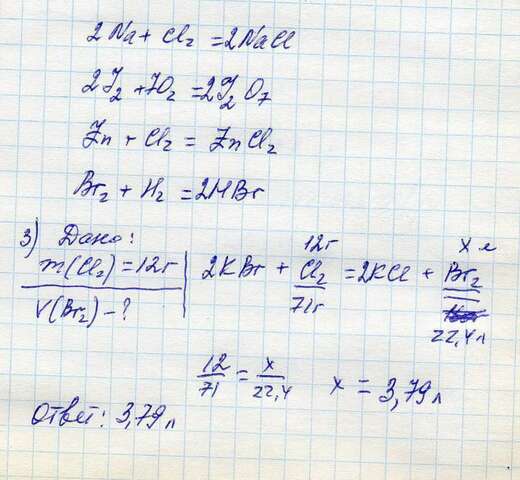 2Na + Cl₂ = 2NaCl
2J₂ + 7O₂ = 2J₂O₇
Zn + Cl₂ = ZnCl₂
Br₂ + H₂ = 2HBr
3) Дано:
m(Cl₂) = 12г
V(Br₂) - ?
12г x л
2KBr + Cl₂ = 2KCl + Br₂
71г 22,4л
12/71 = x/22,4 x = 3,79л
Ответ: 3,79л